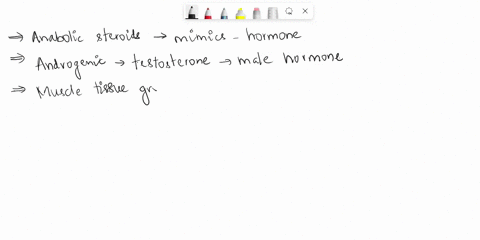 ⇒ Anabolic steroids → mimics - hormone
⇒ Androgenic → testosterone → male hormone
⇒ Muscle tissue gr